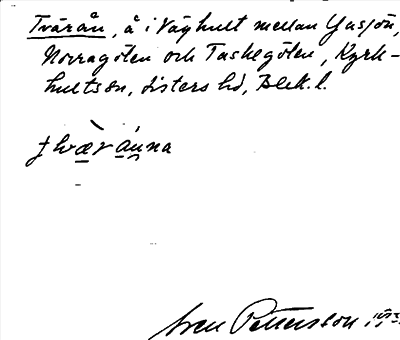 Tvärån, å i Våghult mellan Gasjön,
Norragölen och Taskegölen, Kyrk-
hultssn, Listers hd, Blek. l.
Sven Pettersson